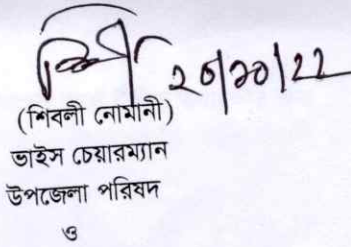 ২০/১০/২২
(শিবলী নোমানী)
ভাইস চেয়ারম্যান
উপজেলা পরিষদ
ও